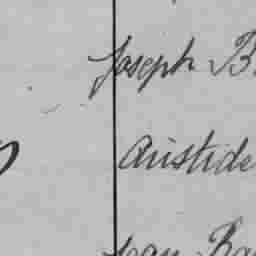 Joseph B
Aristide
Jean Ba